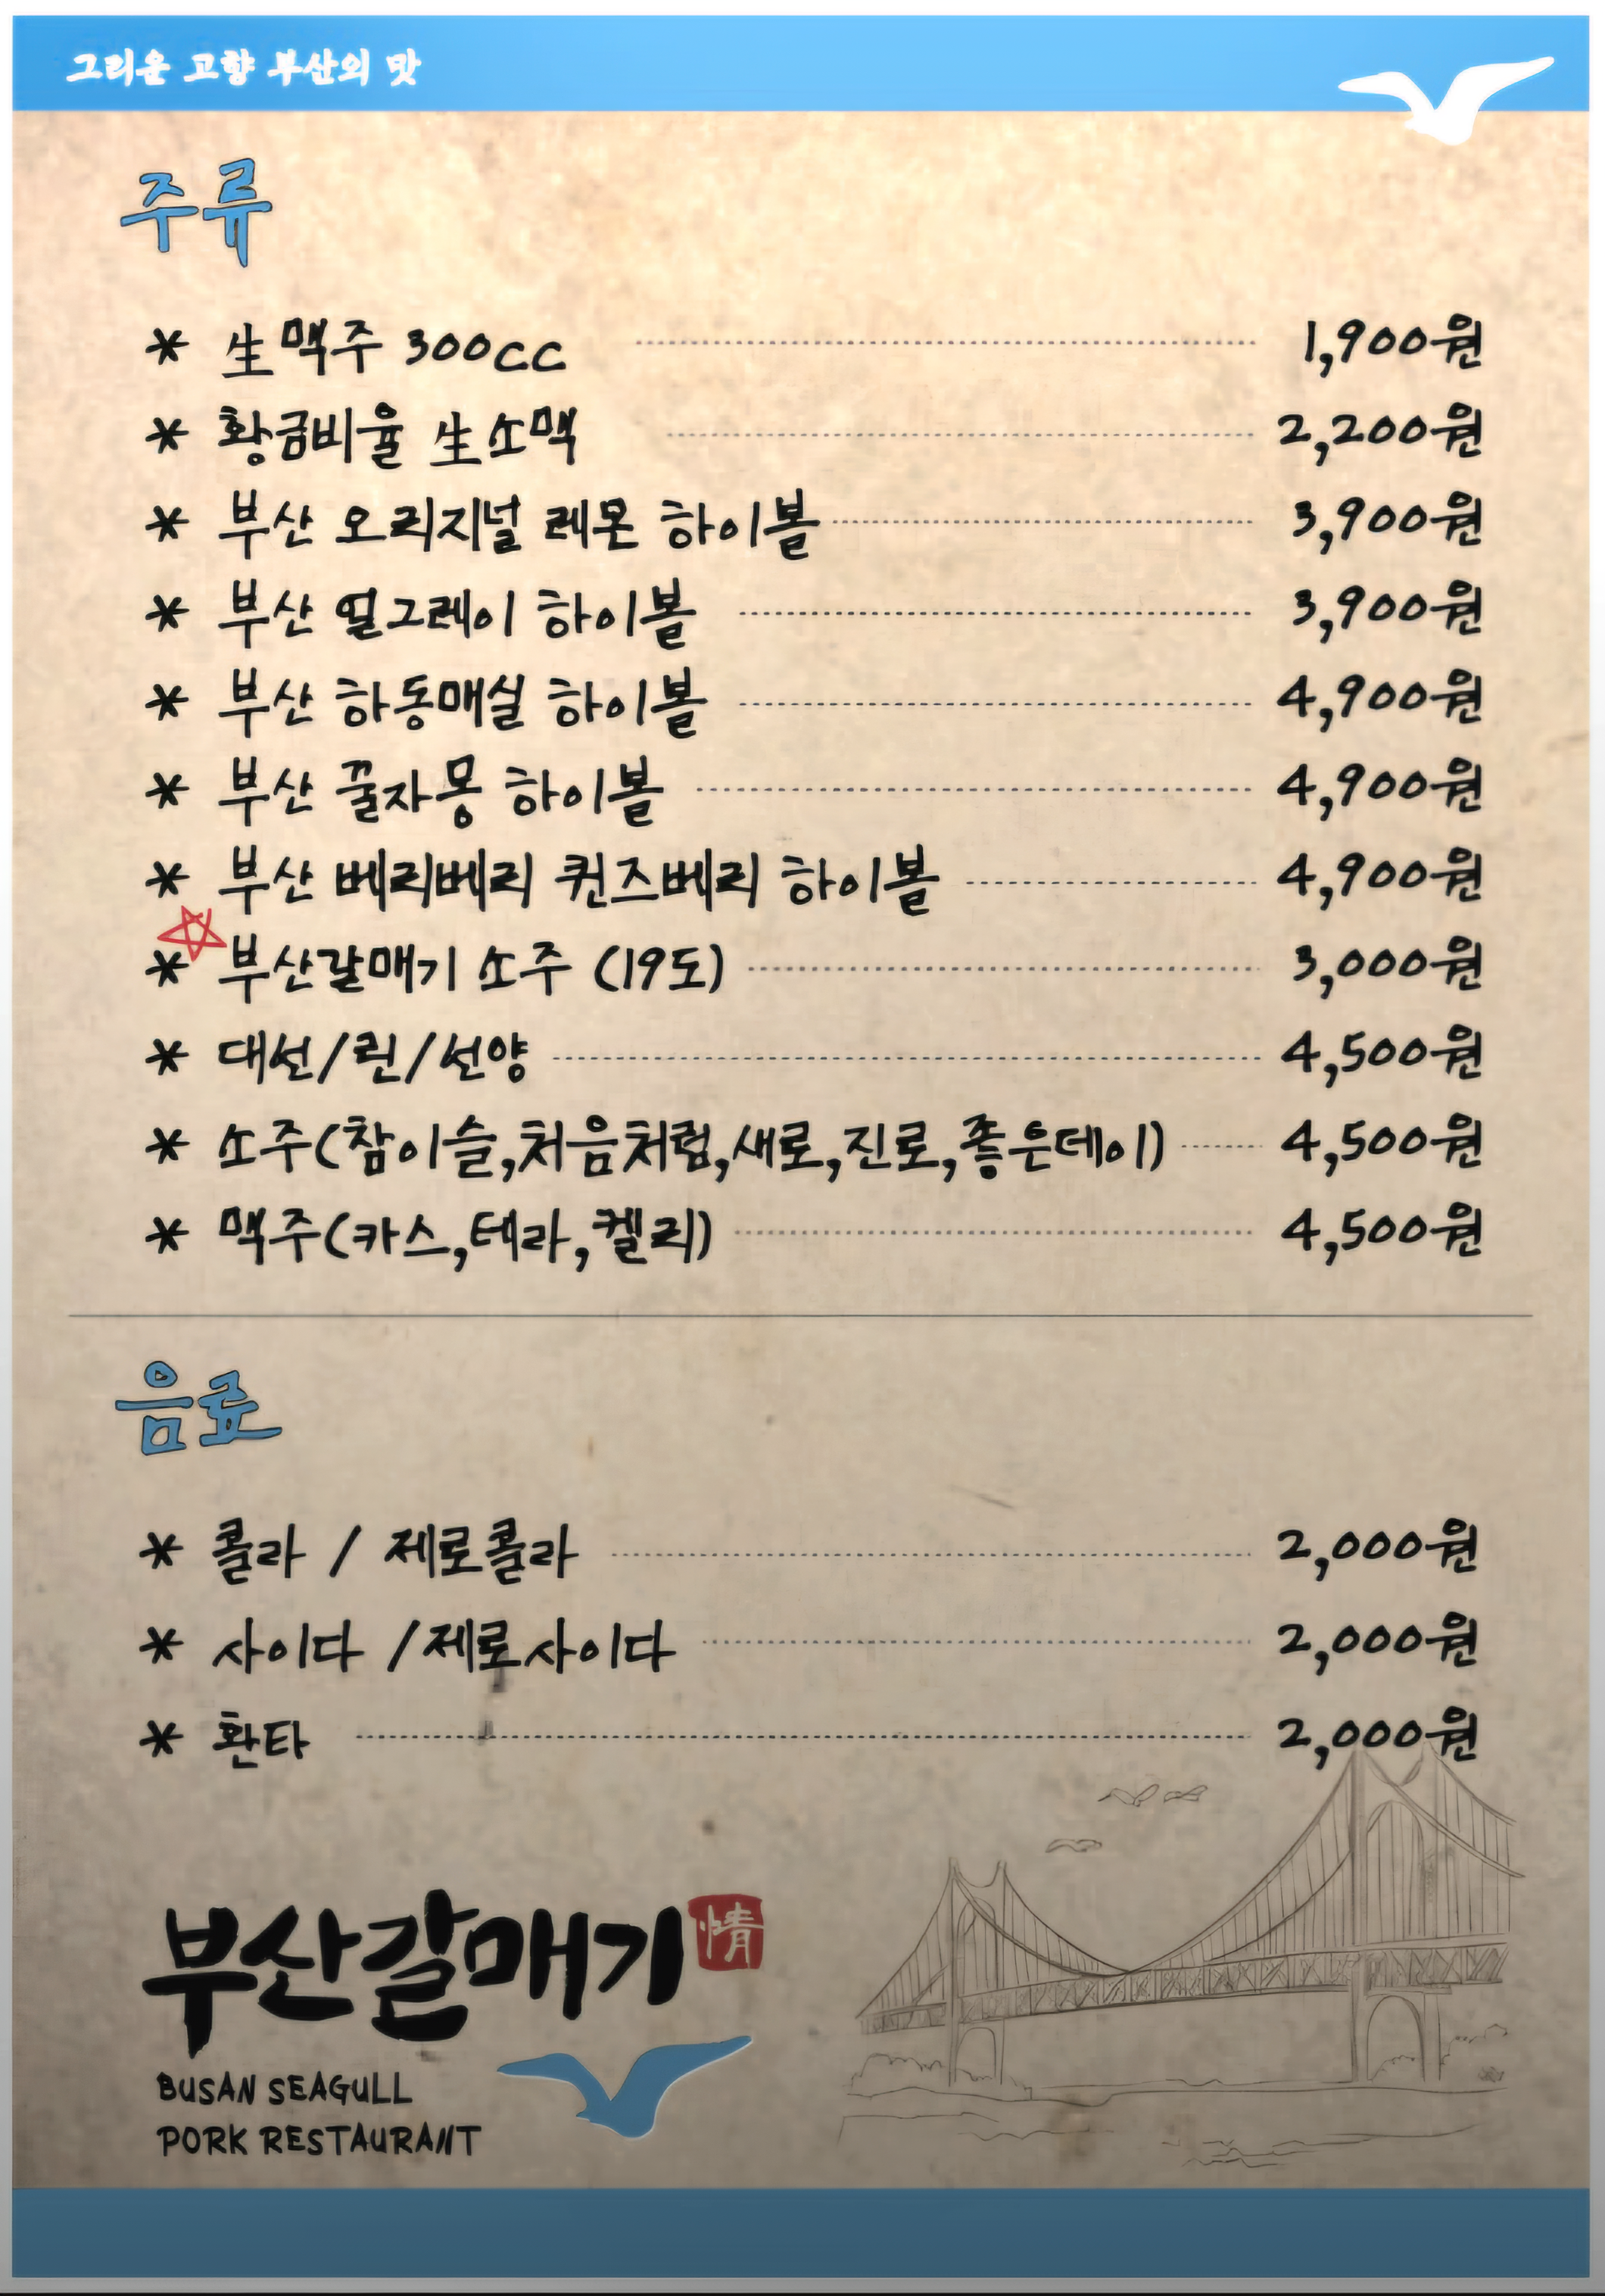 그리운 고향 부산의 맛
주류
* 生맥주 300cc 1,900원
* 황금비율 生소맥 2,200원
* 부산 오리지널 레몬 하이볼 3,900원
* 부산 얼그레이 하이볼 3,900원
* 부산 하동매실 하이볼 4,900원
* 부산 꿀자몽 하이볼 4,900원
* 부산 베리베리 퀸즈베리 하이볼 4,900원
* 부산갈매기 소주 (19도) 3,000원
* 대선/린/선양 4,500원
* 소주(참이슬,처음처럼,새로,진로,좋은데이) 4,500원
* 맥주(카스,테라,켈리) 4,500원
음료
* 콜라 / 제로콜라 2,000원
* 사이다 /제로사이다 2,000원
* 환타 2,000원
부산갈매기 情
BUSAN SEAGULL
PORK RESTAURANT